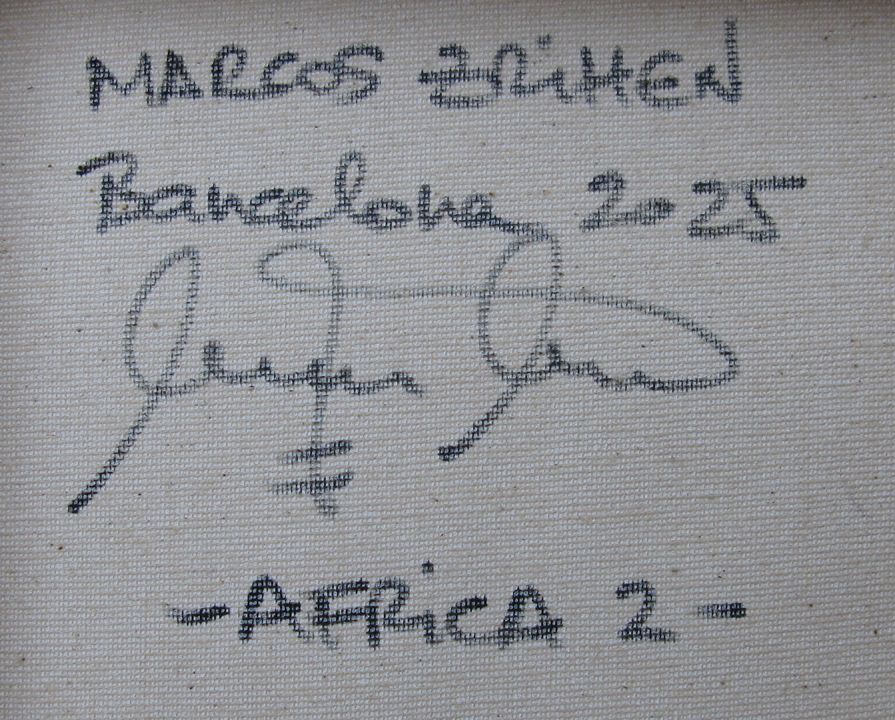 MARCOS
Barcelona 2025
-AFRiCA 2-